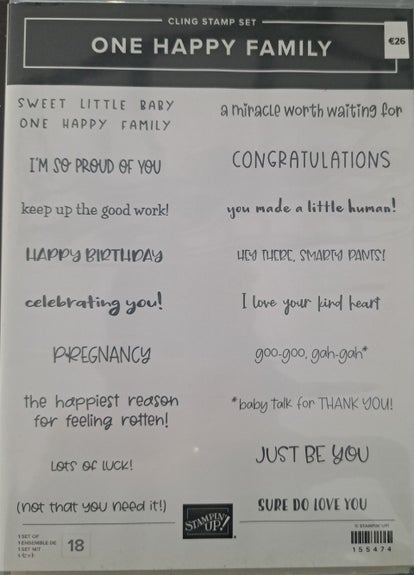 CLING STAMP SET
ONE HAPPY FAMILY
€26
SWEET LITTLE BABY
ONE HAPPY FAMILY
I'M SO PROUD OF YOU
keep up the good work!
HAPPY BIRTHDAY
celebrating you!
PREGNANCY
the happiest reason
for feeling rotten!
LOTS OF LUCK!
(not that you need it!)
a miracle worth waiting for
CONGRATULATIONS
you made a little human!
HEY THERE, SMARTY PANTS!
I love your kind heart
goo-goo, gah-gah*
*baby talk for THANK YOU!
JUST BE YOU
SURE DO LOVE YOU
1 SET OF
1 ENSEMBLE DE
1 SET MIT
18
STAMPIN' UP!
© STAMPIN' UP!
155474